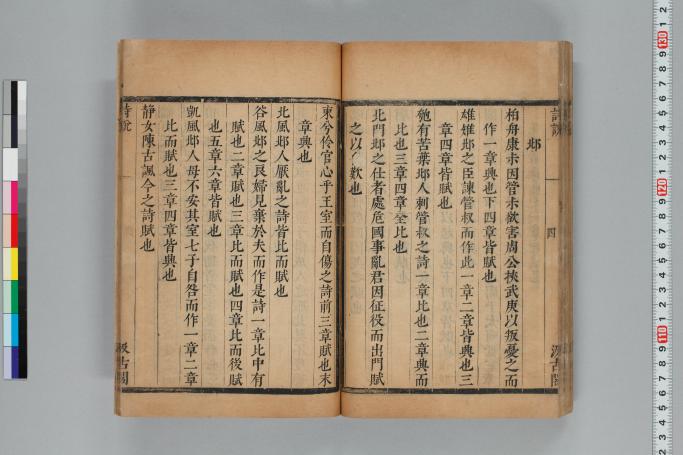 邶
柏舟康叔因管叔欲害周公挾武庚以叛憂之而
作一章興也下四章皆賦也
雄雉邶之臣諫管叔而作此一章二章皆興也三
章四章皆賦也
匏有苦葉邶人刺管叔之詩一章比也二章興而
比也三章四章全比也
北門邶之仕者處危國事亂君因征役而出門賦
之以 歎也
柬兮伶官心乎王室而自傷之詩前三章賦也末
章興也
北風邶人厭亂之詩皆比而賦也
谷風邶之良婦見棄於夫而作是詩一章比中有
賦也二章賦也三章比而賦也四章比而後賦
也五章六章皆賦也
凱風邶人母不安其室七子自咎而作一章二章
比而賦也三章四章皆興也
靜女陳古諷今之詩賦也
詩說
四
汲古閣
詩說
汲古閣